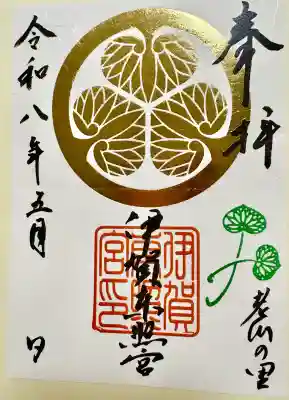 奉拝
伊賀東照宮
伊賀東照宮印
農の里
令和八年五月 日